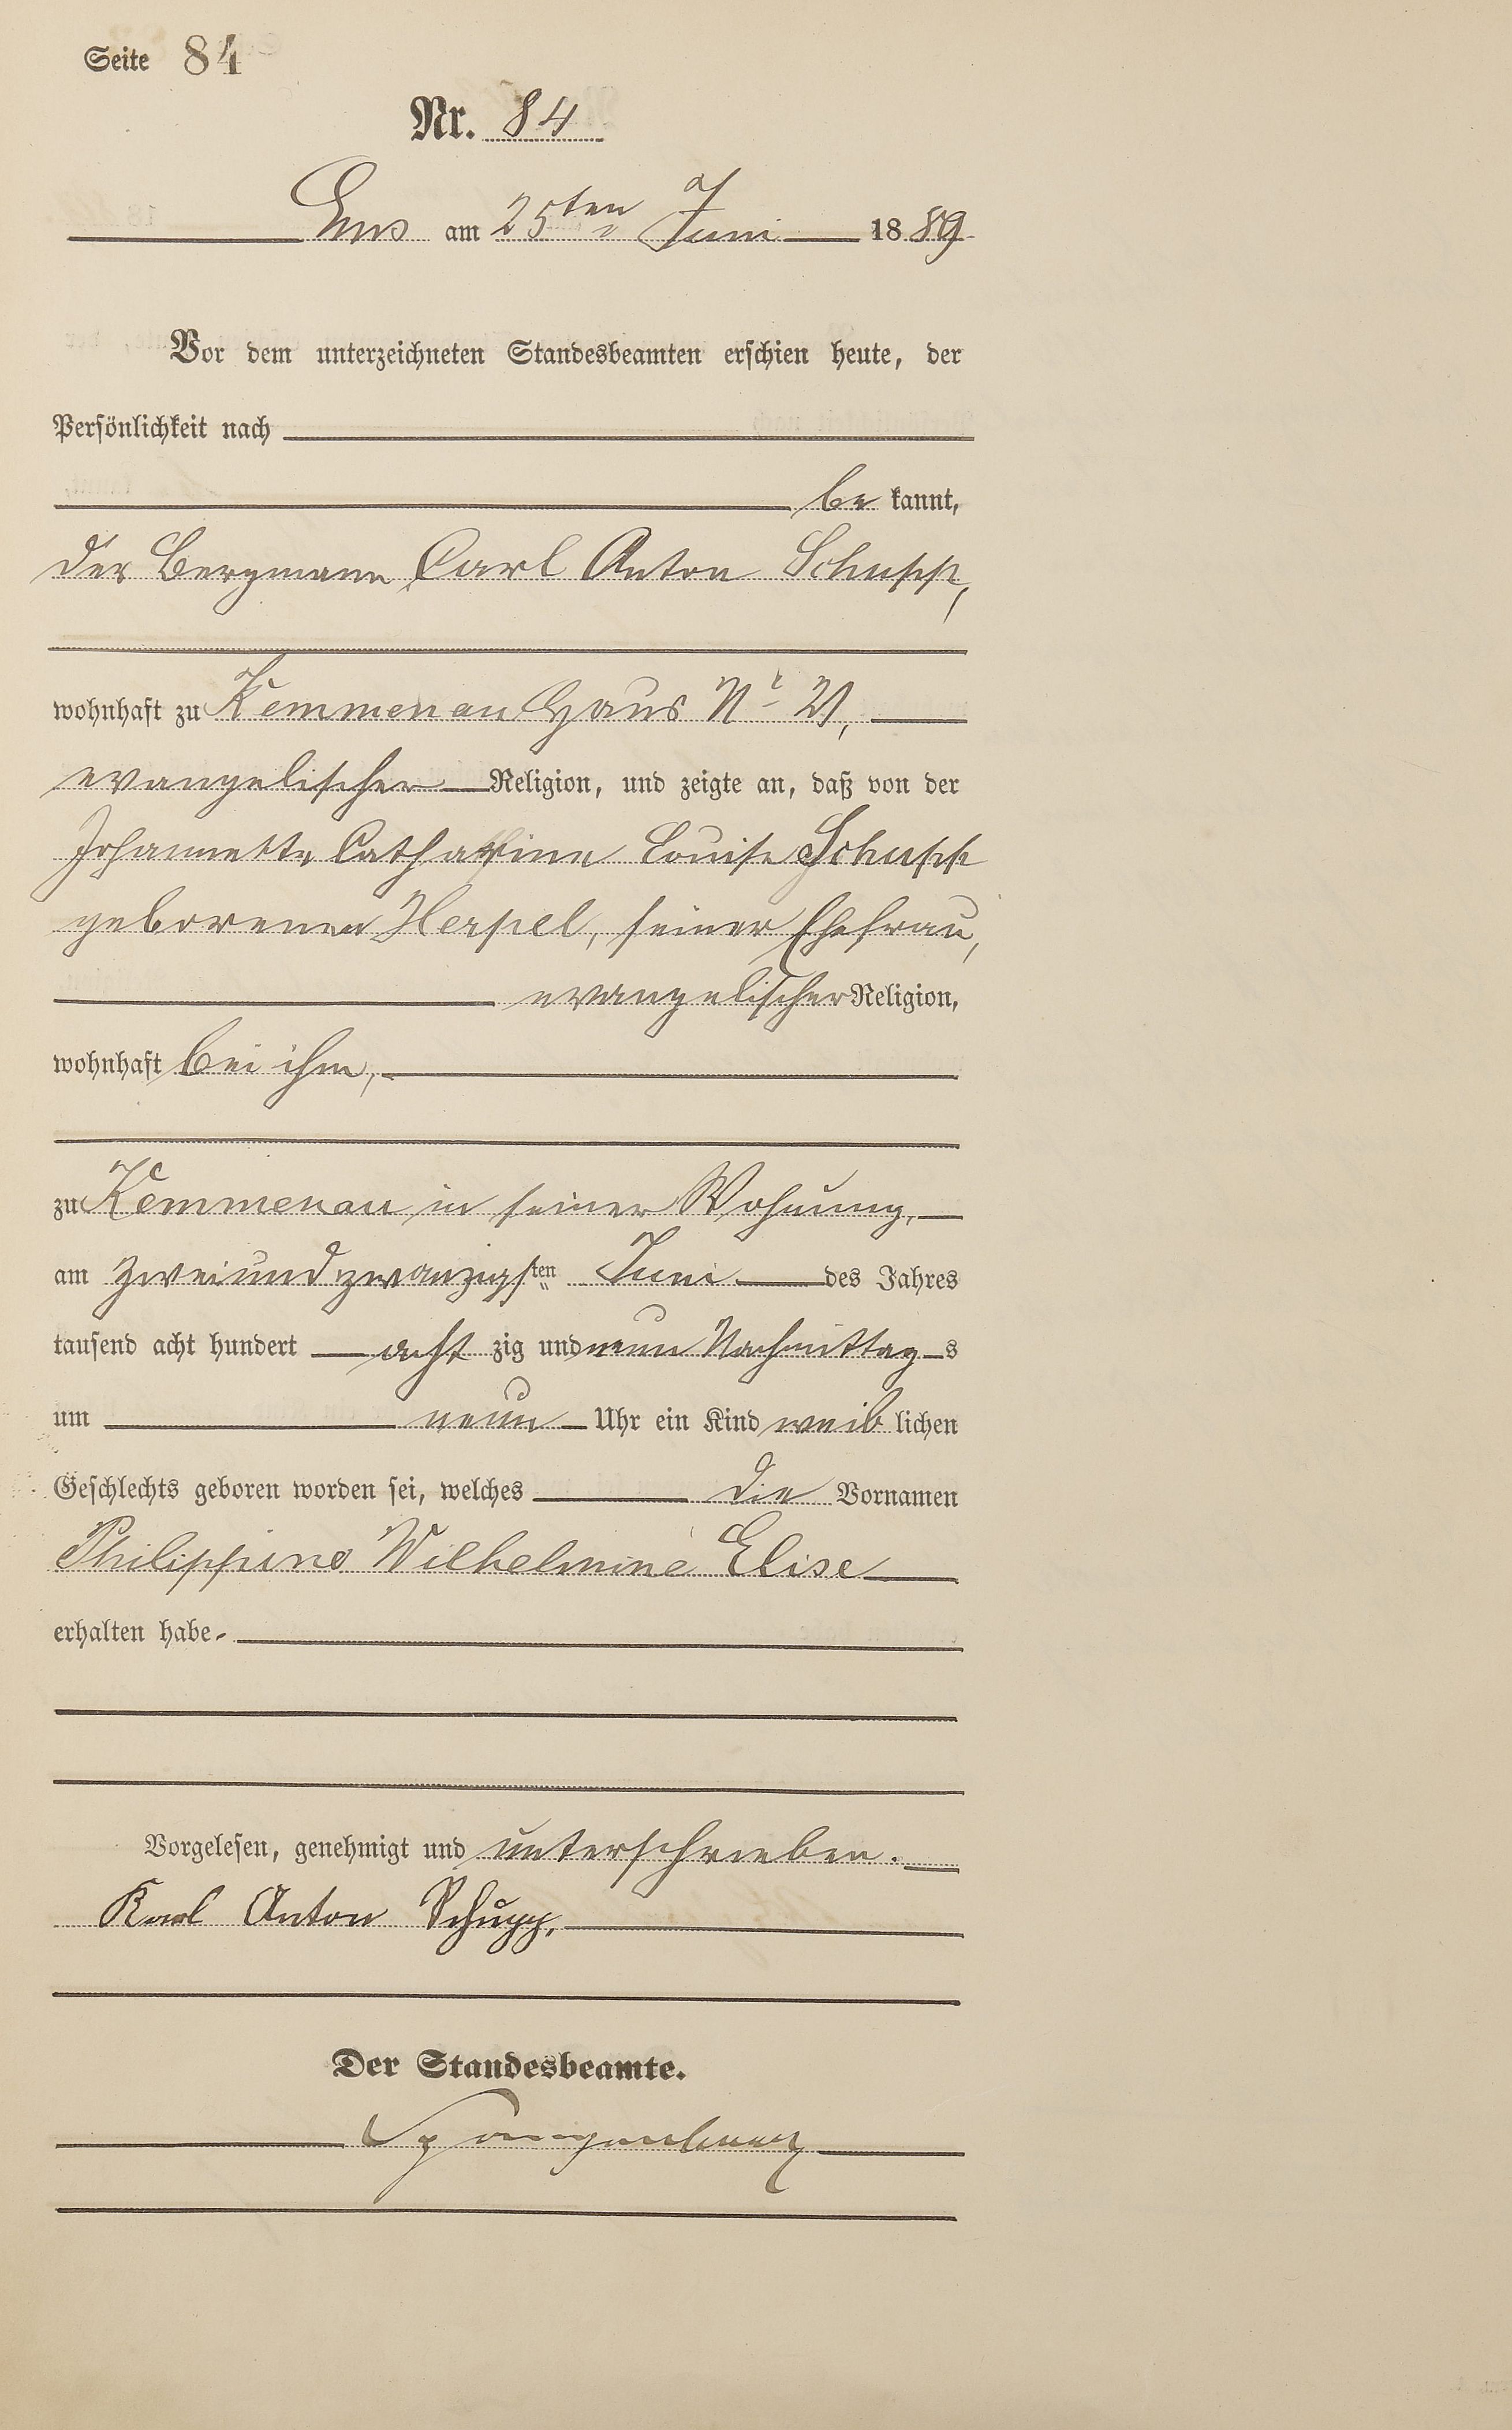 Seite 84
Nr. 84
Ems am 25ten Juni 1889
Vor dem unterzeichneten Standesbeamten erschien heute, der
Persönlichkeit nach
be kannt,
der Bergmann Carl Anton Schupp,
wohnhaft zu Kemmenau Haus Nr
evangelischer Religion, und zeigte an, daß von der
Johannette Catharine Louise Schupp
geborenen Herpel, seiner Ehefrau,
evangelischer Religion,
wohnhaft bei ihm,
zu Kemmenau in seiner Wohnung,
am zweiundzwanzigsten Juni des Jahres
tausend acht hundert acht zig und neun Nachmittag s
um neun Uhr ein Kind weib lichen
Geschlechts geboren worden sei, welches die Vornamen
Philippine Wilhelmine Elise
erhalten habe.
Vorgelesen, genehmigt und unterschrieben.
Karl Anton Schupp.
Der Standesbeamte.